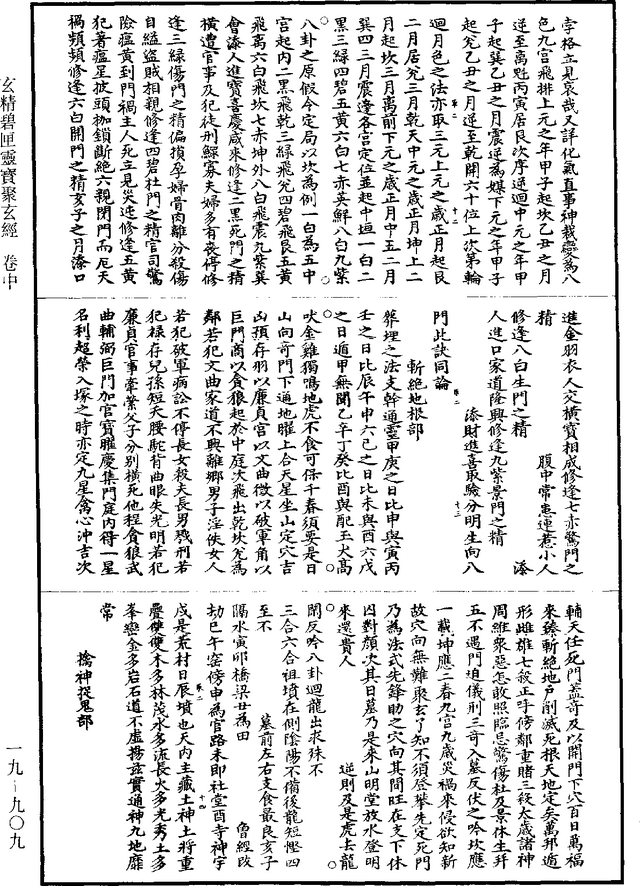 孛格立見哀哉又詳化氣直事神栽慶為八
色九宮飛排上元之年甲子起坎乙丑之月
逆至离𠃔丙寅居艮次序逆迴中元之年甲
子起巽乙丑之月震逆為媒下元之年甲子
起兌乙丑之月逆至乾開六十位上次第輪
迴月色之法亦取三元上元之歲正月起艮
二月居兌三月乾天中元之歲正月坤上二
月起坎三月萬前下元之歲正月中五二月
巽四三月震逢各宮定位並起中垣一白二
黑三綠四碧五黃六白七赤英鮮八白九紫
八卦之原假令定局以坎為例一白為五中
宮起內二黑飛乾三綠飛兌四碧飛艮五黃
飛离六白飛坎七赤坤外八白飛震九紫巽
會添人進寶喜慶咸來修逢二黑死門之精
橫遭官事及犯徒刑鰥寡夫婦多有喪停修
逢三綠傷門之精偏損孕婦骨肉離分殺傷
自縊盜賊相親修逢四碧杜門之精官司驚
險瘟黃到門禍主人死立見災迍修逢五黃
犯著瘟星披頭枷鎖斷絕六親閉門而厄天
禍頻頻修逢六白開門之精亥子之月添口
進金羽衣人交橫寶相成修逢七赤驚門之
精　腹中常患連惹小人
修逢八白生門之精　添
人進口家道隆興修逢九紫景門之精
添財進喜取驗分明生向八
門此訣同論
斬絕地根部
葬埋之法支幹通靈甲庚之日比申與寅丙
壬之日比辰午申六己之日比未與酉六戊
之日遁甲無聞乙辛丁癸比酉與配玉犬高
吠金雞獨鳴地虎不食可保千春須要是日
山向奇門下通地曜上合天星坐山定穴吉
凶預存羽以廉貞宮以文曲徵以破軍角以
巨門商以貪狼起於中庭次飛出乾坎兌為
鄰若犯文曲家道不興離鄉男子淫佚女人
若犯破軍病訟不停長女殺夫長男殘刑若
犯祿存兒孫短天腰駝背曲眼失光明若犯
廉貞官事牽縈父子分別橫死他程貪狼武
曲輔弼巨門加官寶曜慶集門庭內得一星
名利超榮入塚之時亦定九星禽心沖吉次
輔天任死門蓋奇及以開門下穴百日萬福
來臻斬絕地戶削滅死根天地定矣萬邦遁
形雌雄七殺正呼傍鄰重賭三殺太歲諸神
周維衆惡怎敢照臨忌驚傷杜及景休生幷
五不遇門迫儀刑三奇入墓反伏之吟坎應
一載坤應二春九宮九歲災禍來侵欲知新
故穴向無難聚玄丫知不須登攀先定死門
乃為法式先鋒助之穴向其間旺在支下休
囚對顏次其日墓乃是來山明堂放水登明
來還貴人　逆則及是虎去龍
閑反吟八卦迴龍出求殊不
三合六合祖墳在側陰陽不備後龍短慳四
至不　墓前左右支食最良亥子
隔水寅卯橋梁廿為田　魯經改
劫巳午窑傍申為官路未即社堂酉寺神宇
戌是荒村日辰墳也天內主藏土神上將重
疊雙雙木多林茂水多流長火多光秀土多
峯巒金多岩石道不虛揚茲實通神九地靡
常　擒神捉鬼部
玄精碧匣靈寶聚玄經　卷中
一九—九〇九